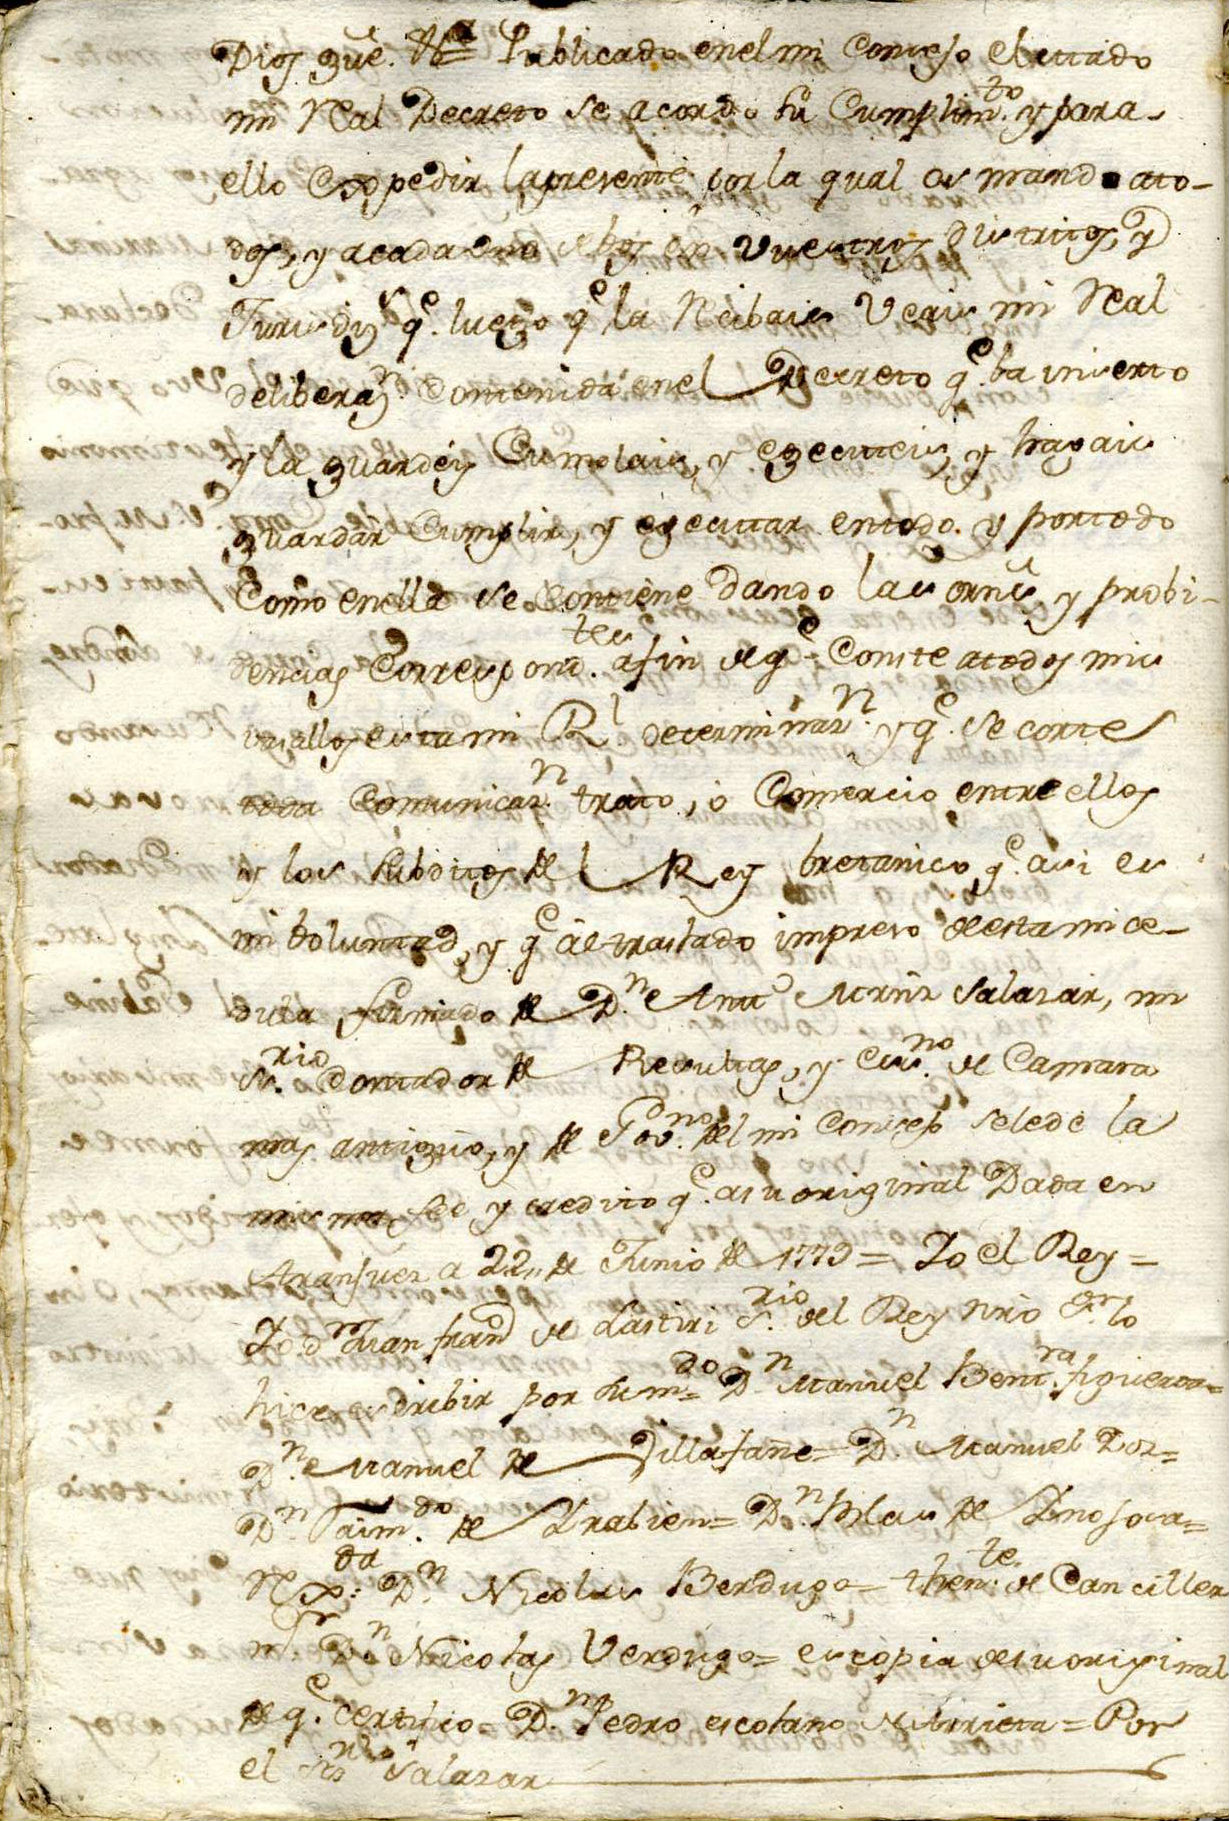 Dios gue. &a Publicado enel mi Consejo el citado
mi Real Decreto se acordo su Cumplimto. y para
ello Expedir lapresente por la qual os mando ato-
dos, y acada uno de Vos en vuestros districtos, y
Jurisdiz.s qe. luego qe la Recibais Veais mi Real
deliberaz.n Contenida enel Decreto qe. ba inserto
y la guardeis Cumplais, y egecuteis, y hagais
guardar Cumplir, y egecutar entodo. y portodo
Como enella se Contiene dando las ornes y probi-
dencias Correspond.tes afin de qe Conste atodos mis
vasallos esta mi Rl determinaz.n y qe. se corte
toda comunicaz.n trato, o Comercio entre ellos
y los subditos del Rey bretanico qe. asi es
mi voluntad, y qe al traslado impreso desta mi ce-
dula firmado de D.n Antto Mrñz Salazar, mi
S.rio Contador de Resultas, y Ess.no de Camara
mas antiguo, y de Gov.no del mi Consejo sele de la
misma fee y credito qe. asu original Dada en
Aranjuez a 22,, de Junio de 1779 = Yo el Rey =
Yo dn Juan Franco de Lastiri S.rio del Rey nrõ Sr. lo
hize escribir por su m.do = D.n Manuel Bent.ra figueroa =
D.n Manuel de Villafañe = D.n Manuel Doz =
D.n Raim.do de Irabien = D.n Blas de Inojosa =
Rex.da D.n Nicolas Berdugo = then.te de Canciller
mr. D.n Nicolas Verdugo = es copia desu original
de qe. certifico = D.n Pedro escolano de Arrieta = Por
el Srio Salazar